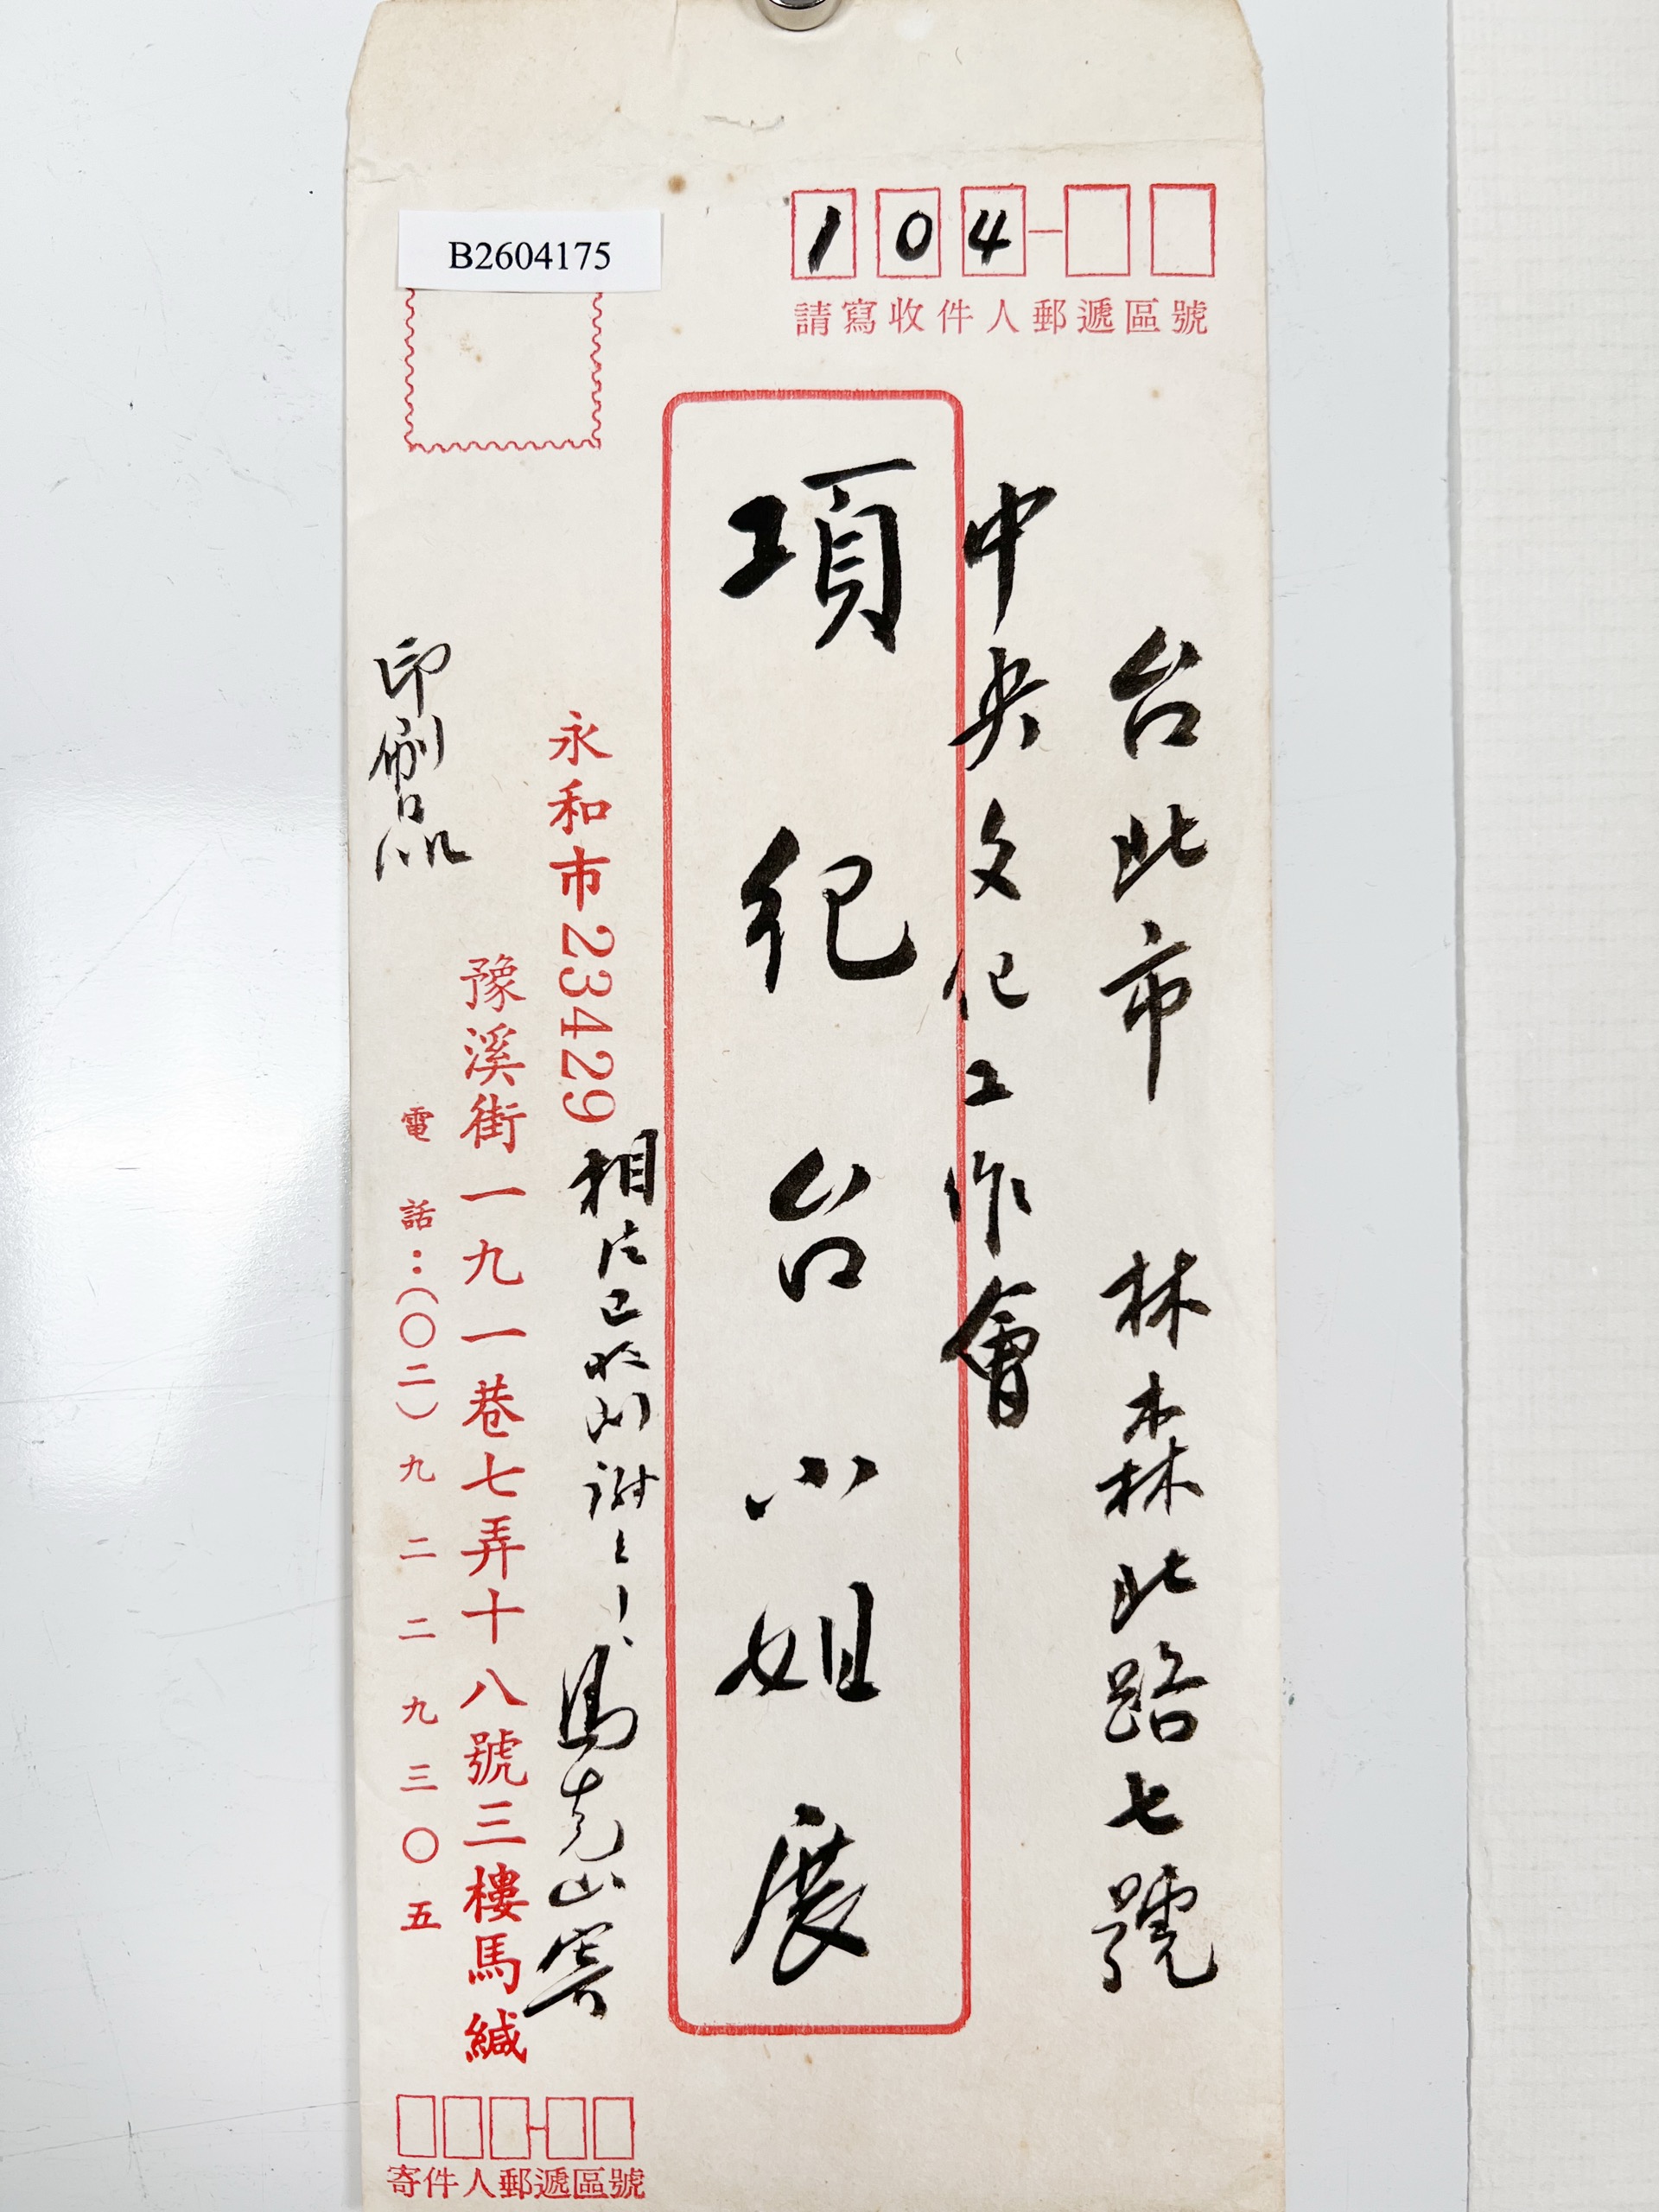 B2604175
104
請寫收件人郵遞區號
台北市 林森北路七號
中央文化工作會
項紀台小姐展
相片已收到謝謝！
馬克山寄
永和市23429
豫溪街一九一巷七弄十八號三樓馬緘
電話：(〇二)九二二九三〇五
印刷品
寄件人郵遞區號